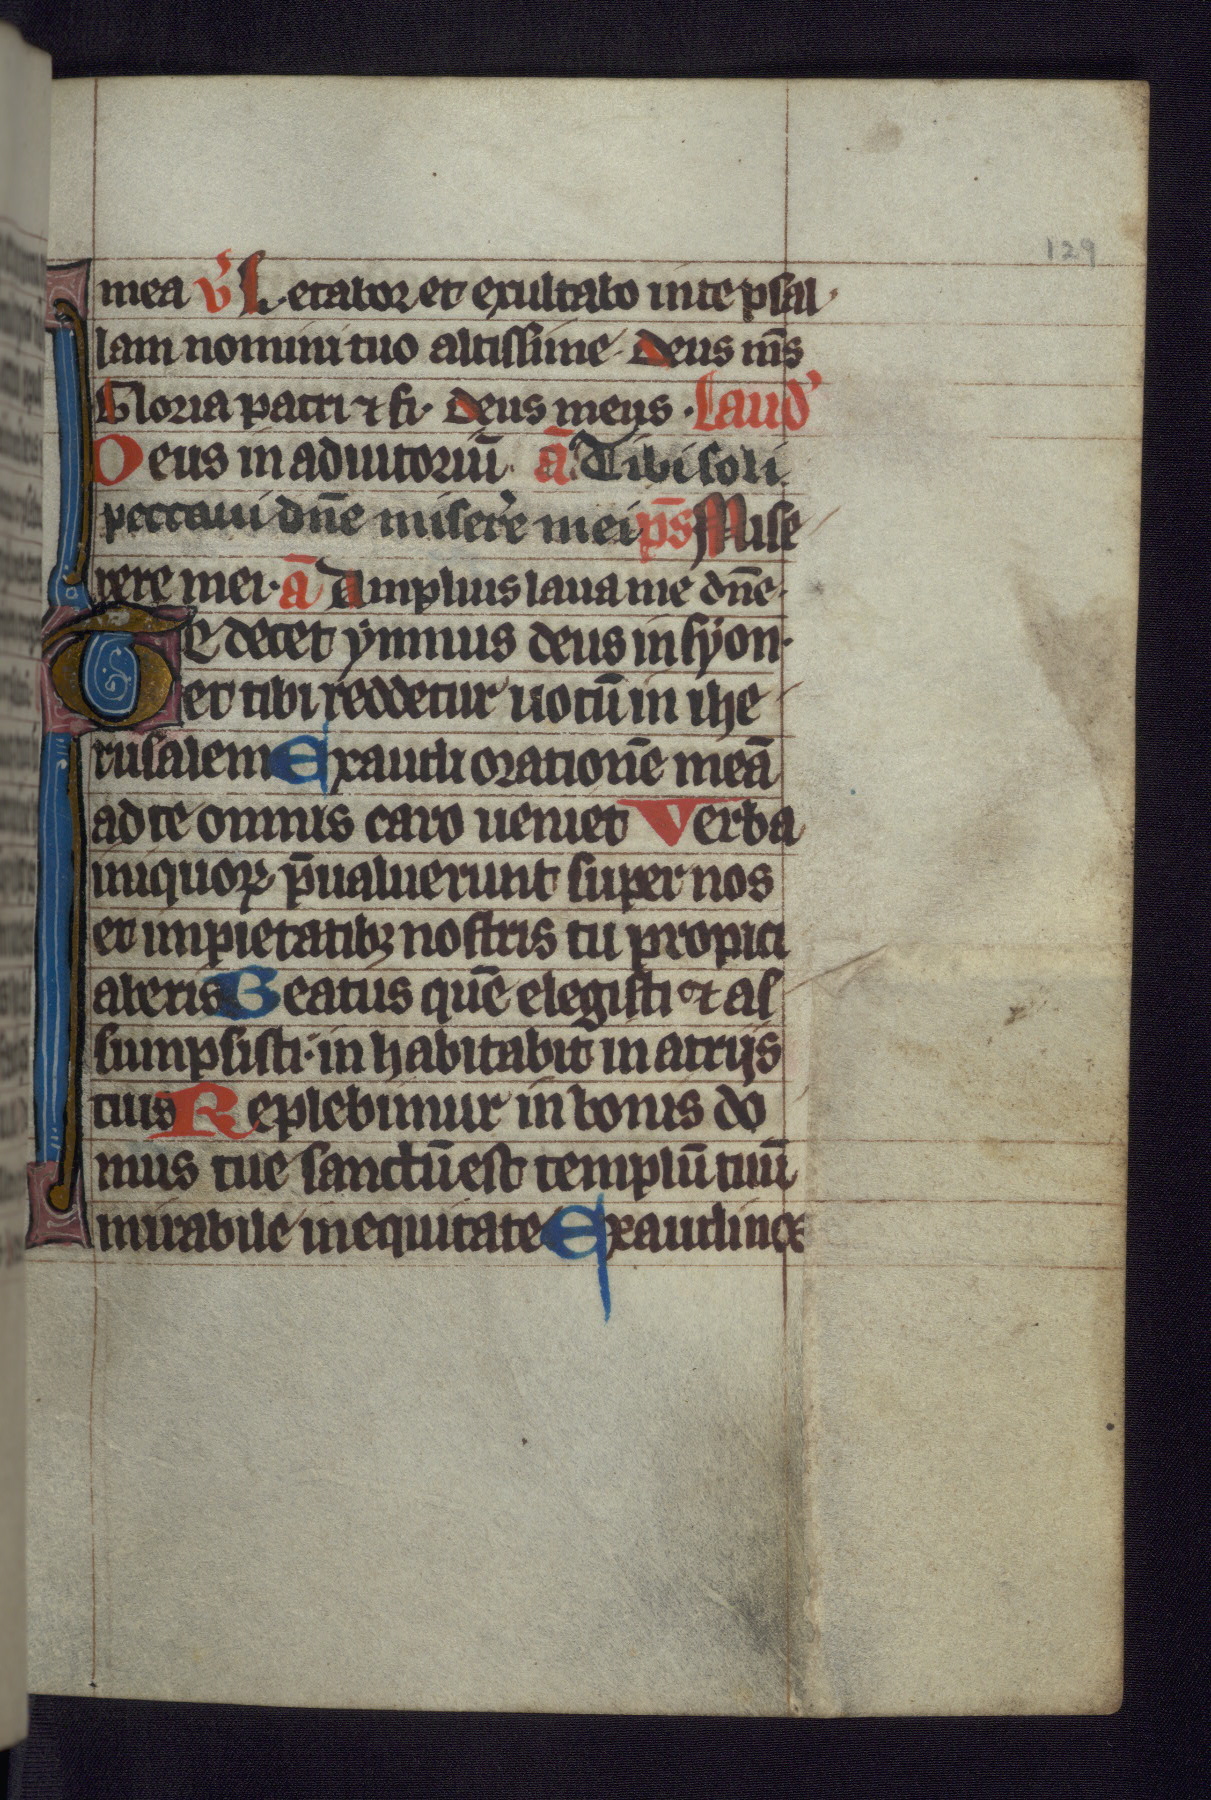 129
mea v̄ Letabor et exultabo in te psal
lam nomini tuo altissime. deus m̄s
Gloria patri ⁊ fi. deus meus. Laud'
Deus in adiutoriū. ā Tibi soli
peccaui dn̄e misere mei p̄s Mise
rere mei. ā Amplius laua me dn̄e.
Te decet ymnus deus in syon.
et tibi reddetur uotū in ihe
rusalem Exaudi orationē meā
ad te omnis caro ueniet Verba
iniquoꝝ p̄ualuerunt super nos
et impietatibꝫ nostris tu propici
aberis Beatus quē elegisti ⁊ as
sumpsisti. inhabitabit in atrijs
tuis Replebimur in bonis do
mus tue sanctū est templū tuū
mirabile in equitate Exaudi nos